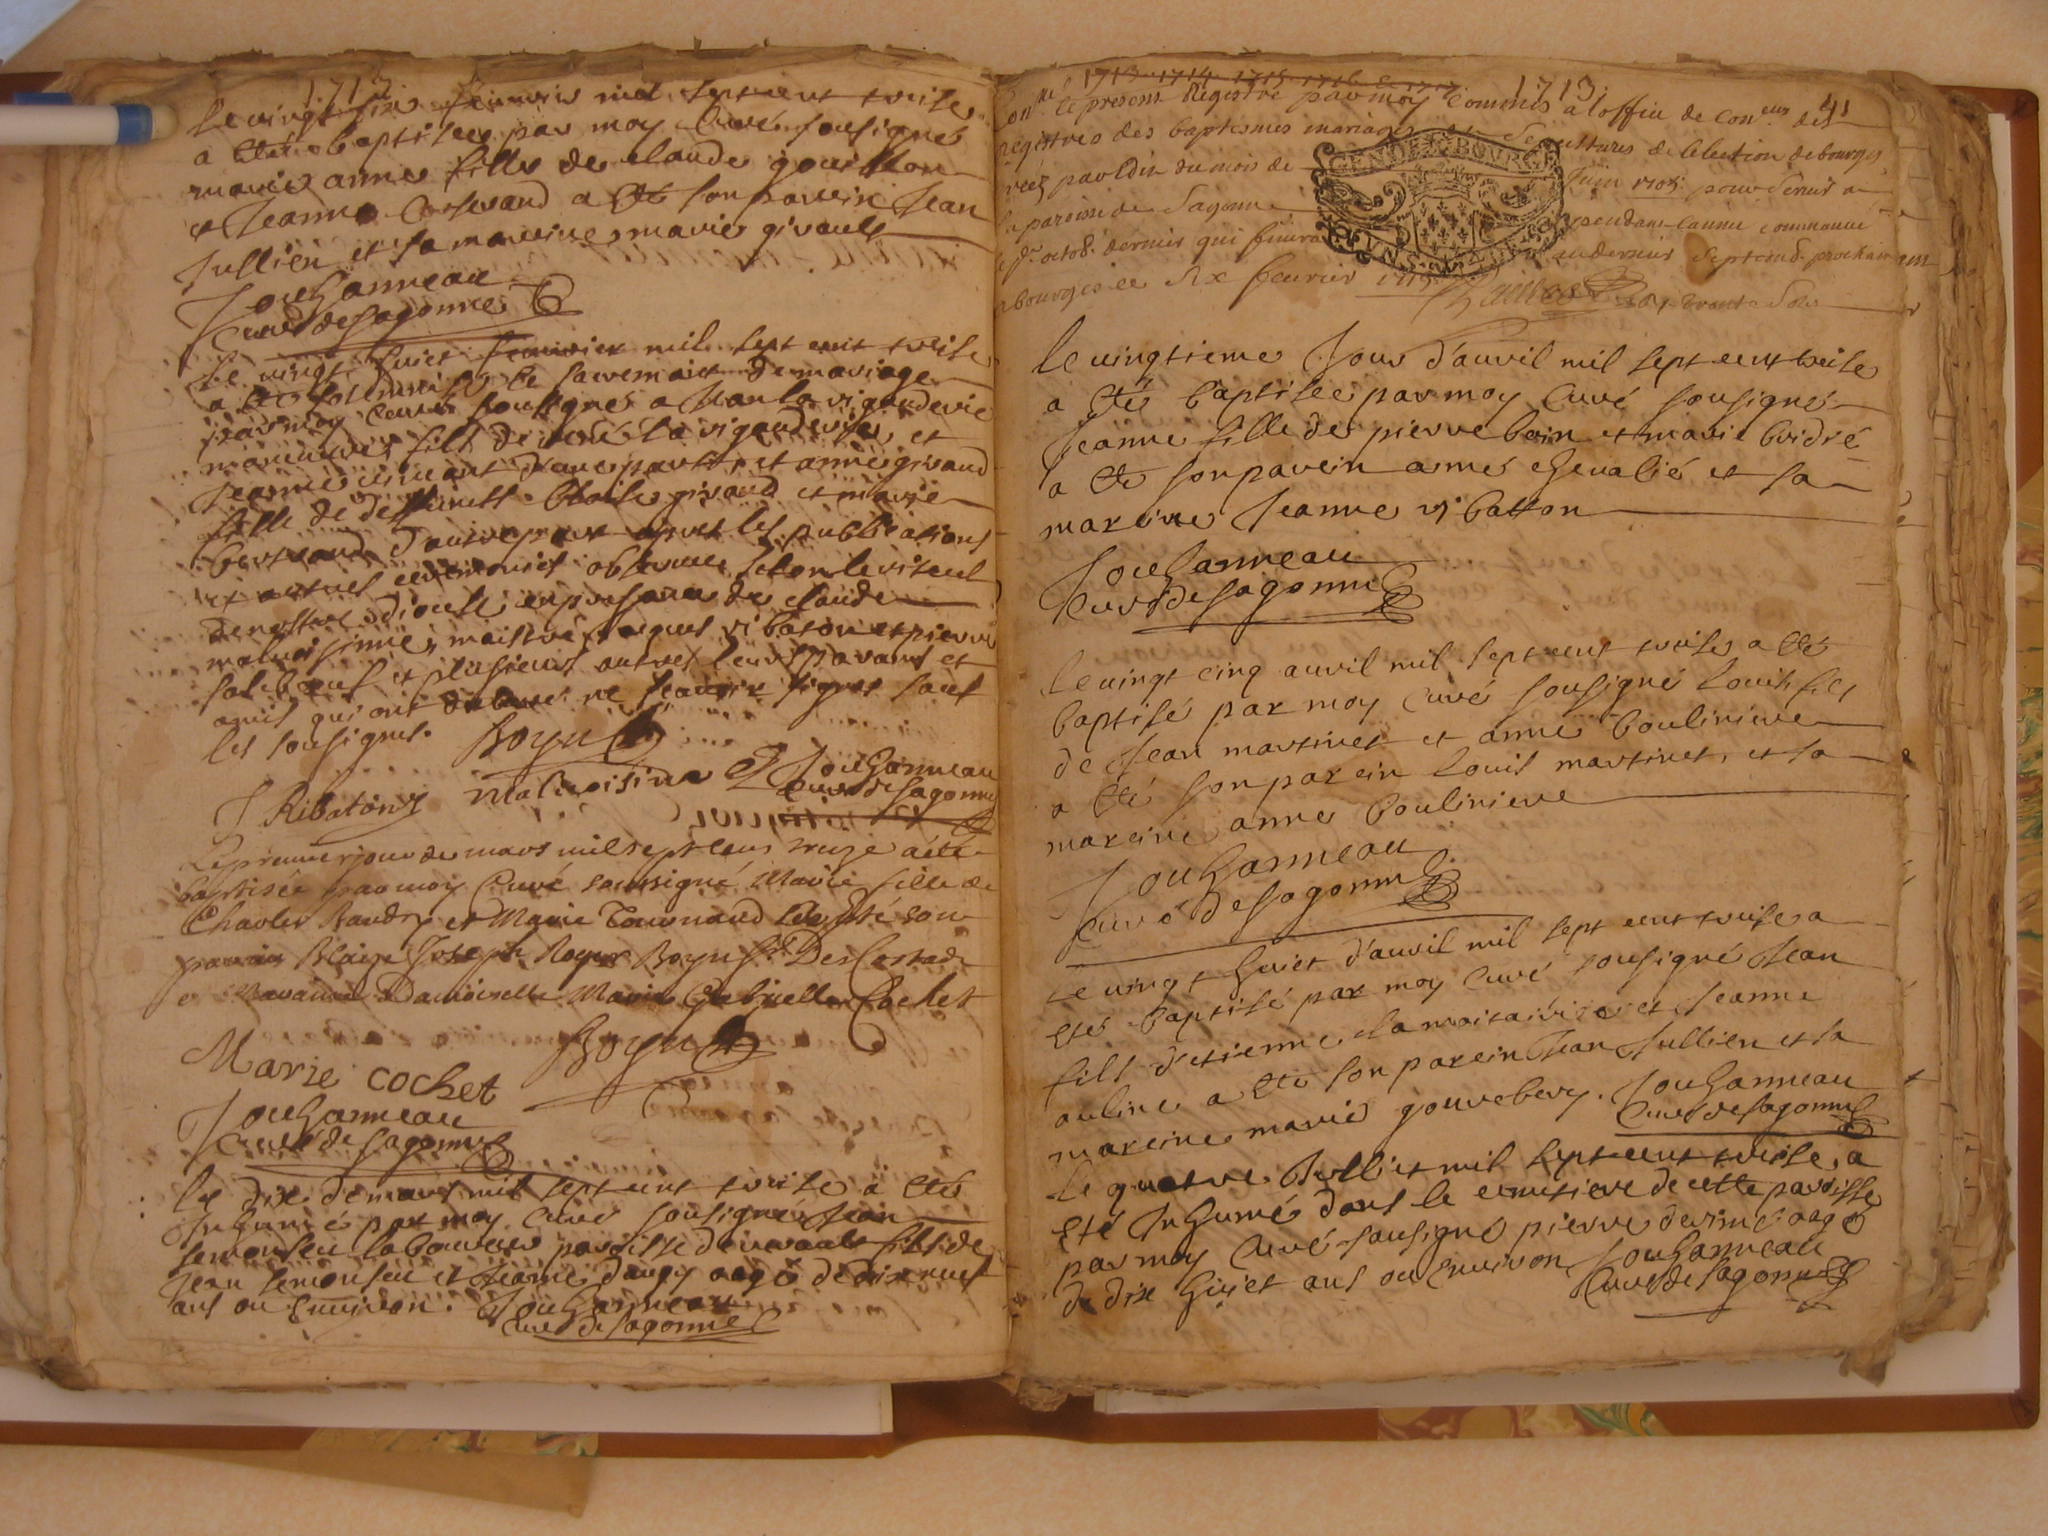 1713
le vingt six feuvrier mil sept cent treise
a étée baptisee par moy Curé sousigné
marie anne fille de claude gouillon
et Jeanne a été son parrein Jean
Jullien et sa marreine marie girault
Jouhanneau
Curé de sagonne
le vingt huiet feuvrier mil sept cent treise
a été solemnisé le sacrement de mariage
par moy Curé sousigné a Jean la rigauderie
manœuvre fils de la rigauderie et
Jeanne d'une part, et anne giraud
fille de deffunct blaise giraud et marie
bertrand d'autre part apres les publications
et autres ceremonies observées selon le rituel
de nostre diocese en presence de claude
malvoisinne, maistre Jacques ribaton et pierre
et plusieurs autres leurs parans et
amis qui ont déclaré ne scavoir signer sauf
les sousignes. Boyn
J Ribaton malvoisine Jouhanneau
Curé de sagonne
Le premier jour de mars mil sept cens treize a été
baptisée par moy Curé soussigné Marie fille de
Charles Baudry et Marie Tournand a été son
parain Blaise Joseph Royer Boyn Sr Des
et Maraine Damoiselle Marie Gabrielle Cochet
Marie cochet Boyn
Jouhanneau
Curé de sagonne
le dix de mars mil sept cent treise a été
Inhumé par moy Curé sousigné Jean
semonseu laboureur paroisse de fils de
Jean semonseu et Jeanne daugy aagé de dix neuf
ans ou Environ. Jouhanneau
Curé de sagonne
1713 1714 1715 1716 et 1717 1713.
le present Registre par moy Commis a l'office de Coneur des 41
registres des baptesmes mariages et Sepultures de l'election de bourges
par Edit du mois de Juin 1705 pour servir a
la paroisse de Sagonne pendant l'année commancée
octob. dernier qui finira au dernier Septemb. prochain
a bourges ce six feuvrier 1713
GEN. DE BOVRGES
le vingtieme Jour d'avril mil sept cent treise
a été baptisee par moy Curé sousigné
Jeanne fille de pierre boin et marie bridré
a été son parein amé chevalié et sa
mareine Jeanne ribatton
Jouhanneau
Curé de sagonne
le vingt cinq avril mil sept cent treise a été
baptisé par moy Curé sousigné Louis fils
de Jean martinet et anne bouliniere
a été son parein Louis martinet, et sa
mareine anne bouliniere
Jouhanneau
Curé de sagonne
le vingt huiet d'avril mil sept cent treise a
eté baptisé par moy Curé sousigné Jean
fils d'etienne lamoitairie et Jeanne
auline a été son parein Jean Jullien et sa
mareine marie gourebery. Jouhanneau
Curé de sagonne
le quatre Julliet mil sept cent treise, a
eté Inhumé dans le cemetiere de cette paroisse
par moy Curé sousigné pierre deriné aagé
de dix huiet ans ou Environ Jouhanneau
Curé de sagonne